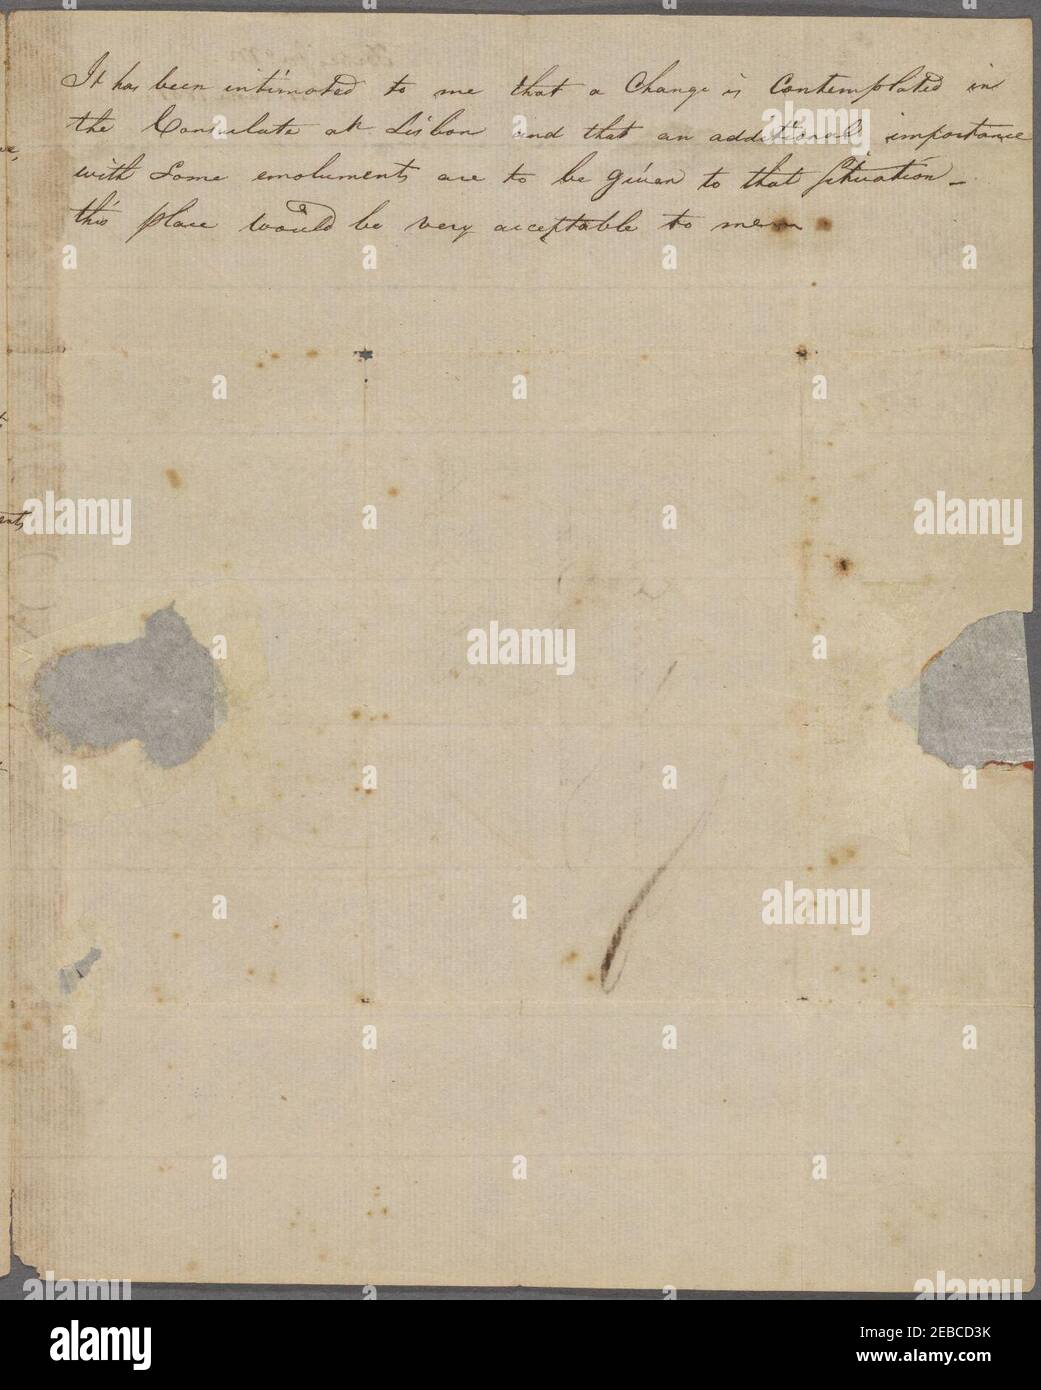 It has been intimated to me that a Change is Contemplated in
the Consulate at Lisbon and that an additional importance
with Some emoluments are to be given to that Situation –
this place would be very acceptable to me
alamy
alamy
Image ID: 2EBCD3K
www.alamy.com